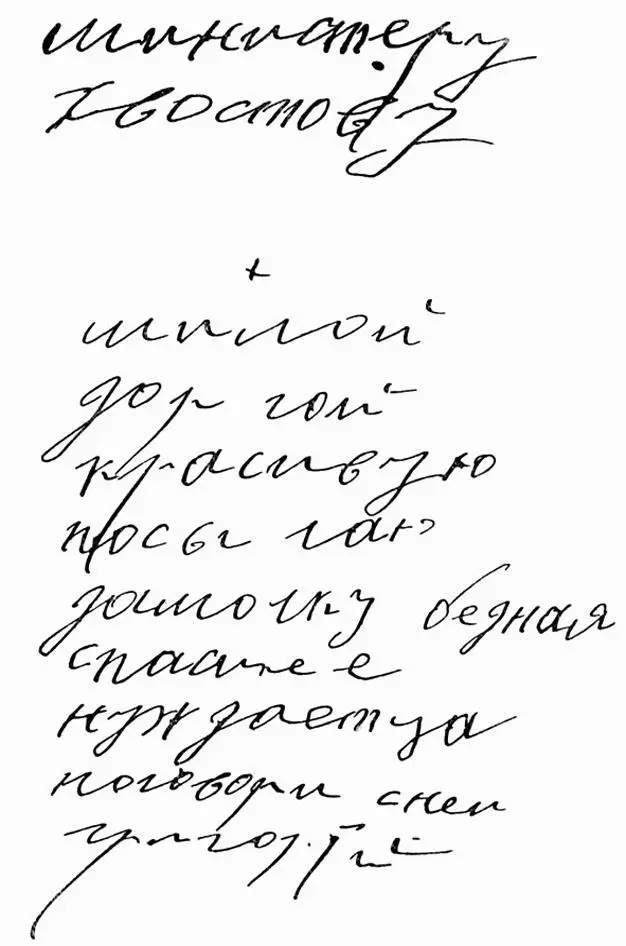 министеру
хвостову
+
милой
дор гой
красивую
посы лаю
дамочку бедная
спаси ее
нуждаетца
поговори снеи